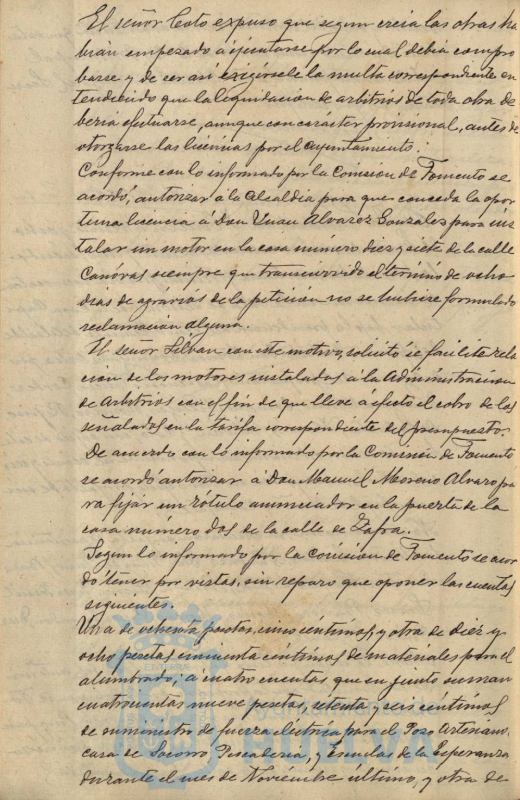 El señor Coto expuso que segun creia las obras ha
bian empezado á ejecutarse por lo cual debia compro
barse y de ser así exigírsele la multa correspondiente en
tendiendo que la liquidacion de arbitrios de toda obra de
beria efectuarse, aunque con carácter provisional, antes de
otorgarse las licencias por el ayuntamiento.
Conforme con lo informado por la Comision de Fomento se
acordó, autorizar á la Alcaldia para que conceda la opor
tuna licencia á Don Juan Alvarez Gonzalez para ins
talar un motor en la casa número diez y siete de la calle
Canóvas siempre que transcurrido el termino de ocho
dias de agravios de la peticion no se hubiese formulado
reclamación alguna.
El señor Silvan con este motivo, solicitó se facilite rela
cion de los motores instalados á la Administracion
de Arbitrios con el fin de que lleve a efecto el cobro de los
señalados en la tarifa correspondiente del presupuesto.
De acuerdo con lo informado por la Comision de Fomento
se acordó autorizar á Don Manuel Moreno Alvaro pa
ra fijar un rótulo anunciador en la puerta de la
casa número dos de la calle de Zafra.
Segun lo informado por la Comision de Fomento se acor
dó tener por vistas, sin reparo que oponer las cuentas
siguientes.
Una de ochenta pesetas, cinco centimos, y otra de diez y
ocho pesetas cincuenta céntimos de materiales para el
alumbrado; á cuatro cuentas que en junto suman
cuatrocientas nueve pesetas, setenta y seis céntimos
de suministro de fuerza eléctrica para el Pozo Artesiano,
casa de Socorro, Pescaderia, y Escuelas de la Esperanza
durante el mes de Noviembre último, y otra de